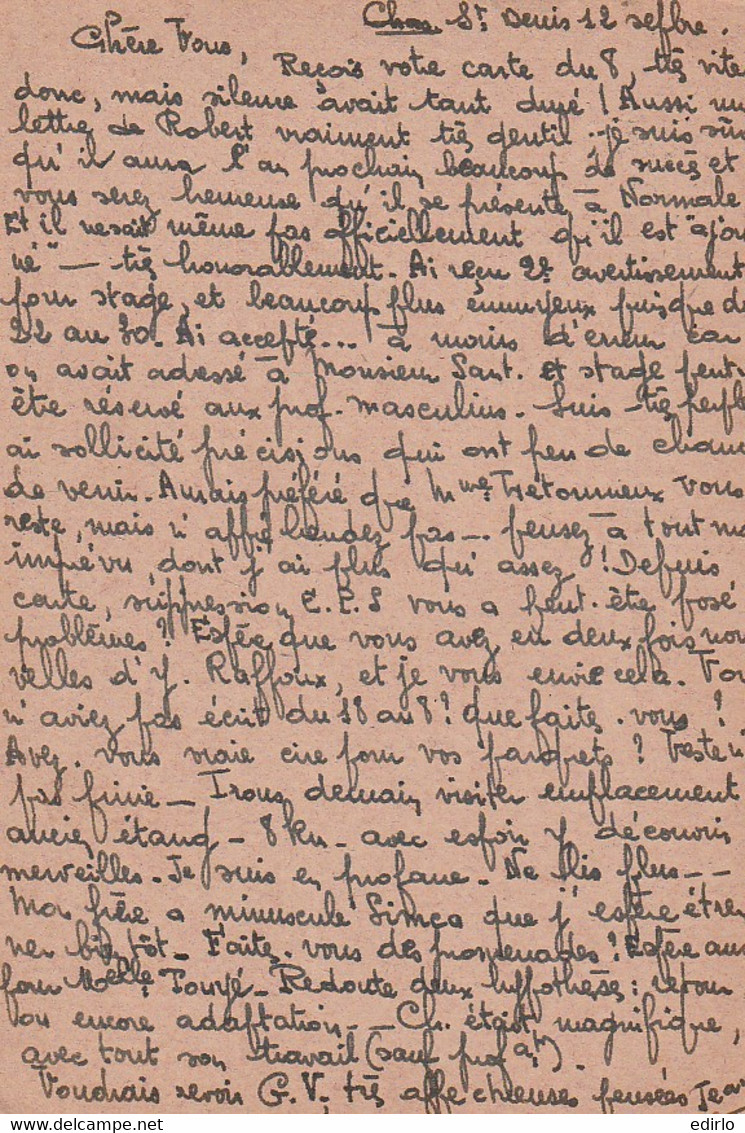 St Denis 12 septbre.
Chère Vous,
Reçois votre carte du 8, très vite
donc, mais silence avait tant duré ! Aussi une
lettre de Robert vraiment très gentil.. je suis sûre
qu'il aura l'an prochain beaucoup de succès et
vous serez heureuse qu'il se présente à Normale
Et il ne sait même pas officiellement qu'il est "ajour
né" — très honorablement. Ai reçu 2e avertissement
pour stage, et beaucoup plus ennuyeux puisque du
22 au 30. Ai accepté... à moins d'erreur car
on avait adressé à Monsieur Sant. et stage peut-
être réservé aux prof. masculins. Suis très perpl
ai sollicité précisions qui ont peu de chance
de venir. Aurais préféré que Mme Trétonnieux vous
reste, mais n'appréhendez pas... pensez à tout mon
imprévu, dont j'ai plus qu'assez ! Depuis
carte, suppression E.P.S vous a peut-être posé
problèmes ? Espère que vous avez eu deux fois nou
velles d'Y. Raffoux, et je vous envie cela.
n'aviez pas écrit du 18 au 8 ? que faites-vous ?
Avez-vous vraie cire pour vos parquets ? Veste n'
pas finie — Irons demain visiter emplacement
ancien étang — 8 km — avec espoir y découvrir
merveilles. Je suis en profane. Ne lis plus - -
Mon frère a minuscule Simca que j'espère étren
ner bientôt — Faites-vous des promenades ? Espère aussi
pour Melle Touyé — Redoute deux hypothèses : retour
ou encore adaptation - - Ch. était magnifique,
avec tout son travail (sauf profat).
Voudrais revoir G.V, très affectueuses pensées
edirlo